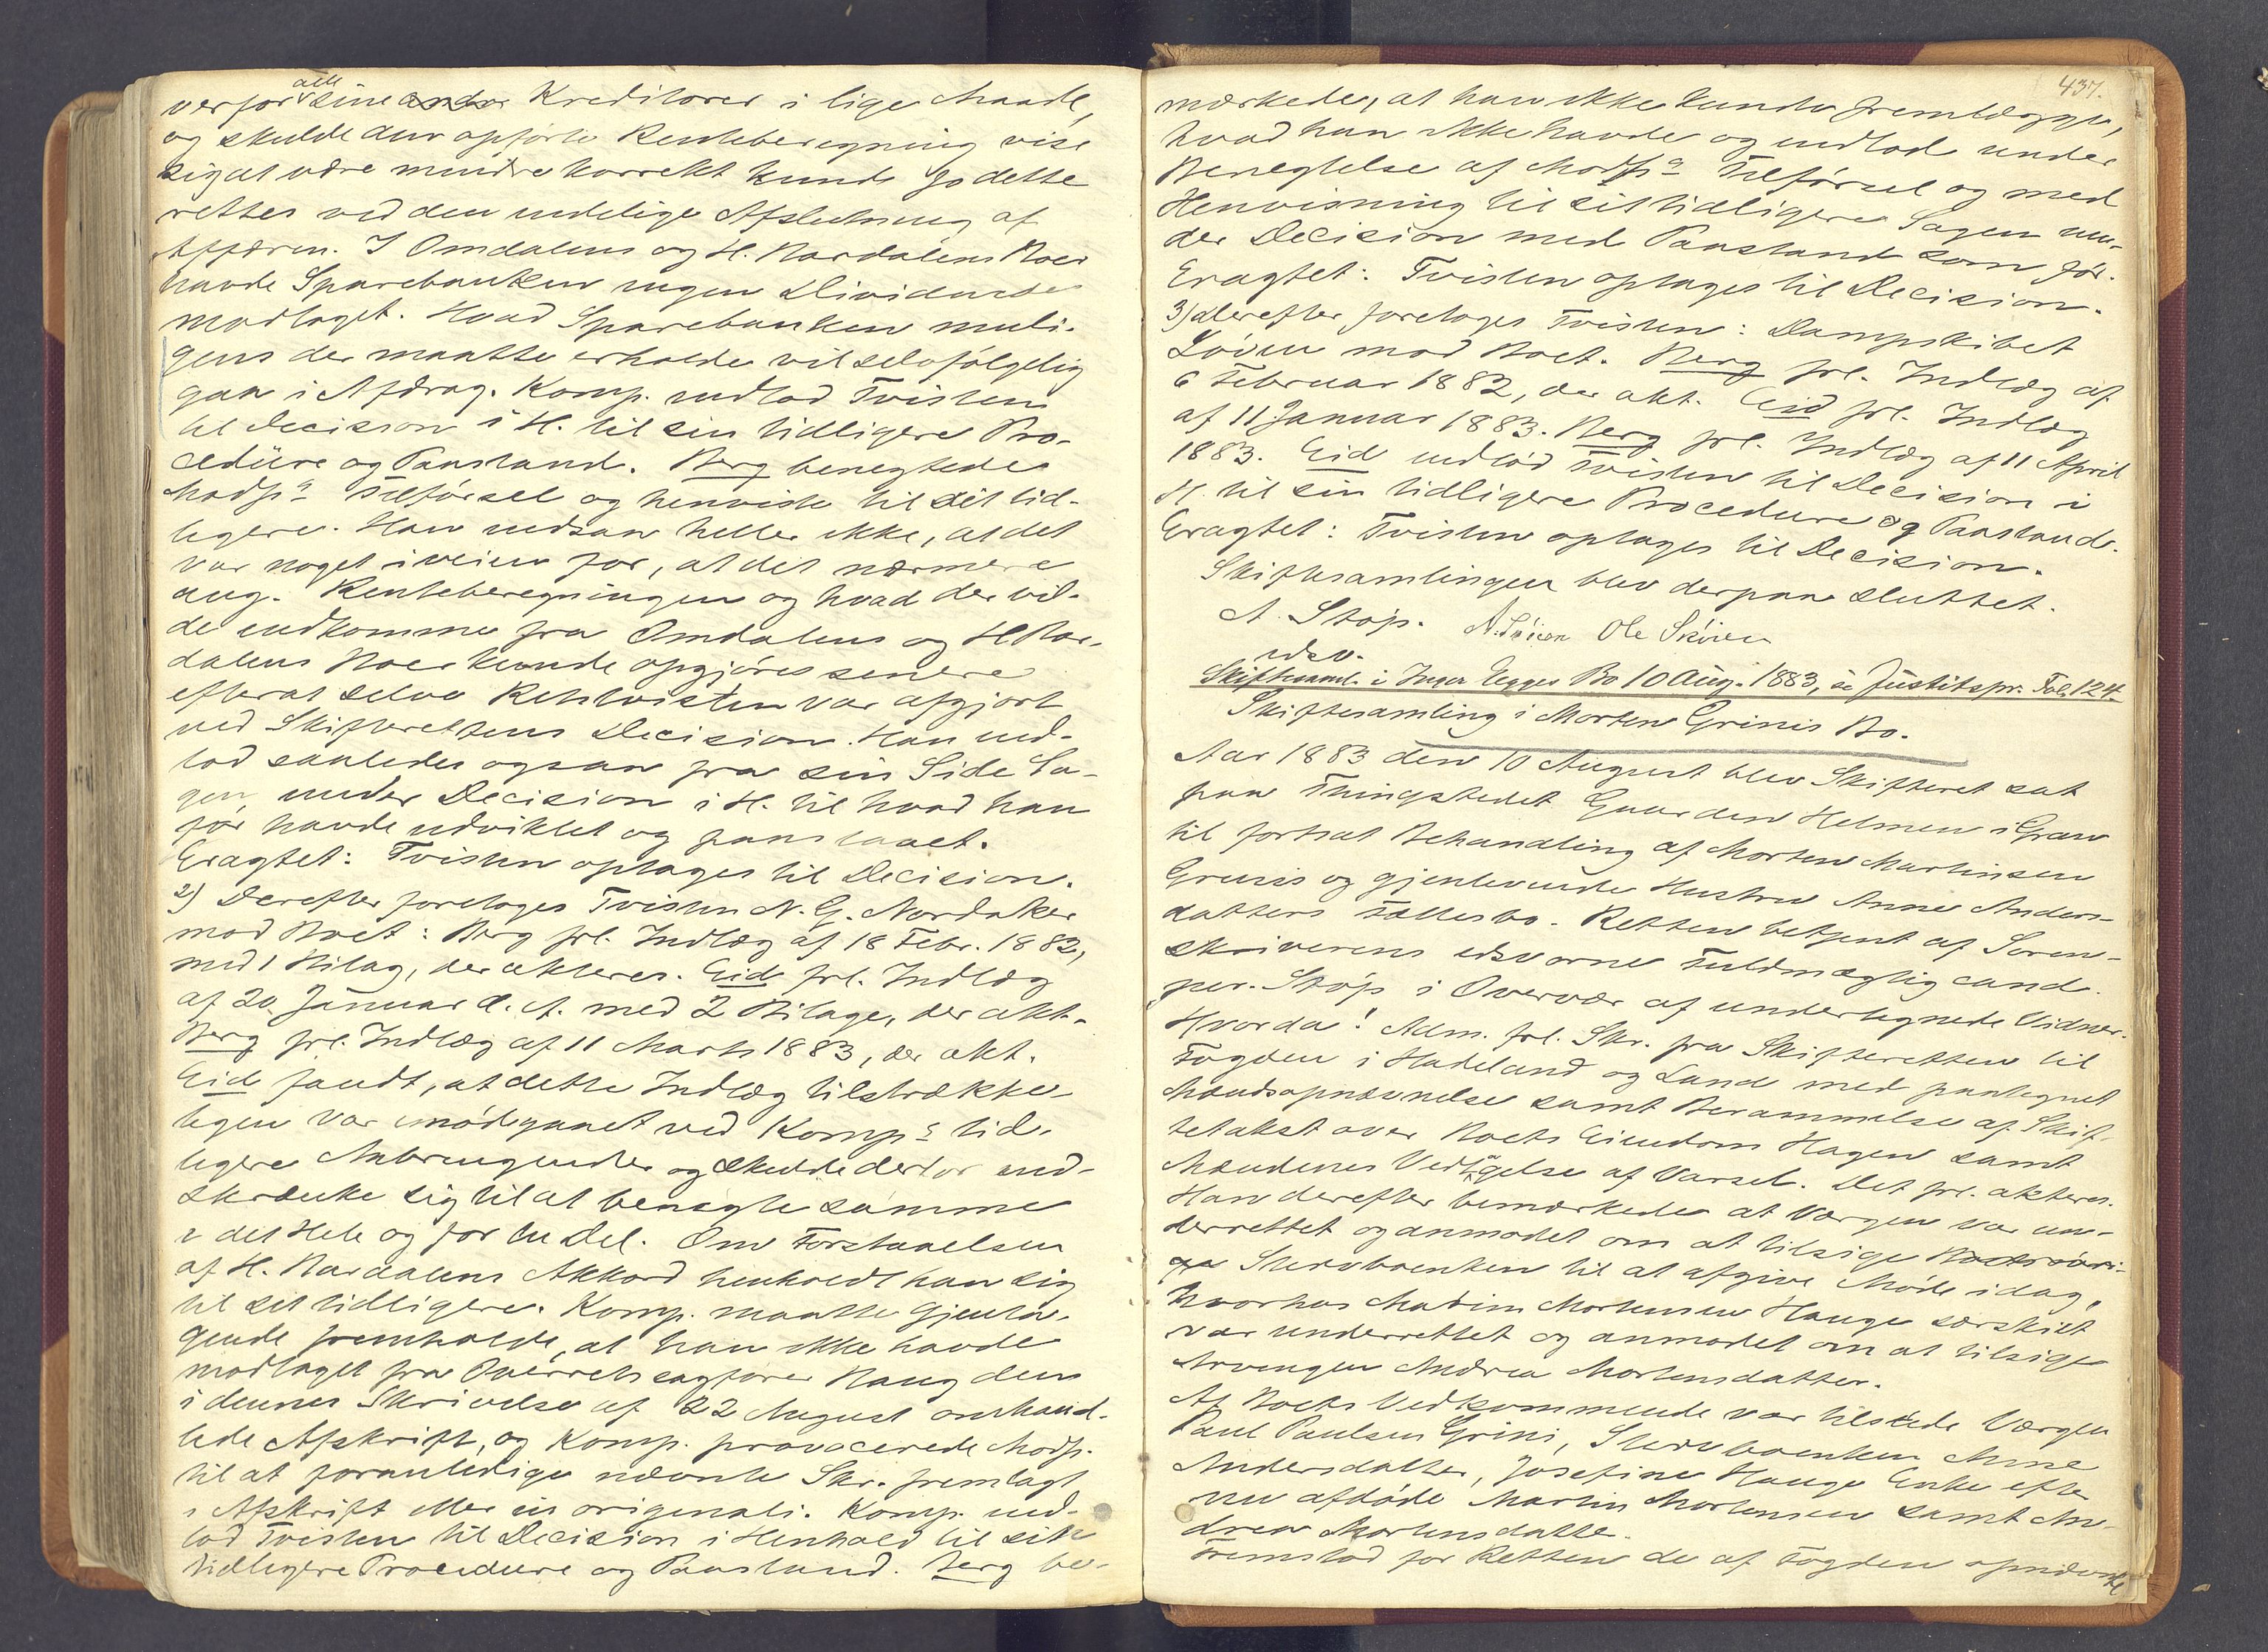 verfor alle sine andre Kreditorer i lige Maade,
og skulde den opførte Renteberegning vise
sig at være mindre korrekt kunde jo dette
rettes ved den endelige Afslutning af
Affæren. I Omdalens og H. Nardalens Boer
havde Sparebanken ingen Dividende
modtaget. Hvad Sparebanken muli-
gens der maatte erholde vil selvfølgelig
gaa i Afdrag. Komp. indlod Tvisten
til Decision i H. til sin tidligere Pro-
cedure og Paastand. Berg benegtede
Modps Tilførsel og henviste til sit tid-
ligere. Han indsaa heller ikke, at det
var noget iveien for, at det nærmere
ang. Renteberegningen og hvad der vil-
de indkomme fra Omdalens og H Nar-
dalens Boer kunde opgjøres senere
efterat selve Retstvisten var afgjort
ved Skifterettens Decision. Han ind-
lod saaledes ogsaa fra sin Side Sa-
gen under Decision i H. til hvad han
før havde udviklet og paastaaet.
Eragtet: Tvisten optages til Decision.
2) Derefter foretoges Tvisten N. G. Nordaker
mod Boet: Berg frl. Indlæg af 18 Febr. 1882,
med 1 Bilag, der akteres. Eid frl. Indlæg
af 20 Januar d. A. med 2 Bilage, der akt.
Berg frl. Indlæg af 11 Marts 1883, der akt.
Eid fandt, at dette Indlæg tilstrække-
ligen var imødegaaet ved Komps tid-
ligere Anbringender og skulde derfor ind-
skrænke sig til at benegte samme
i det Hele og for en Del. Om Forstaaelsen
af H. Nardalens Akkord henholdt han sig
til sit tidligere. Komp. maatte gjenta-
gende fremholde, at han ikke havde
modtaget fra Overretssagfører Haug den
i dennes Skrivelse af 22 August omhand-
lede Afskrift, og Komp. provocerede Modp.
til at foranledige nævnte Skr. fremlagt
i Afskrift eller in originali. Komp. ind-
lod Tvisten til Decision i Henhold til sit
tidligere Procedure og Paastand. Berg be-
437.
mærkede, at han ikke kunde fremlægge,
hvad han ikke havde og indlod under
Benegtelse af Modps Tilførsel og med
Henvisning til sit tidligere Sagen un-
der Decision med Paastand som før.
Eragtet: Tvisten optages til Decision.
3) Derefter foretoges Tvisten: Dampskibet
Løven mod Boet. Berg frl. Indlæg af
6 Februar 1882, der akt. Eid frl. Indlæg
af 11 Januar 1883. Berg frl. Indlæg af 11 April
1883. Eid indlod Tvisten til Decision i
H. til sin tidligere Procedure og Paastand.
Eragtet: Tvisten optages til Decision.
Skiftesamlingen blev derpaa sluttet.
A. Stöp. Ole Skøien
edsv.
Skiftesaml. i Inger Egges Bo 10 Aug. 1883, se Justitspr. Fol. 124.
Skiftesamling i Morten Grinis Bo.
Aar 1883 den 10 August blev Skifteret sat
paa Thingstedet Gaarden Helmen i Gran
til fortsat Behandling af Morten Martinsen
Grinis og gjenlevende Hustru Anne Anders-
datters Fællesbo. Retten betjent af Soren-
skriverens edsvorne Fuldmægtig cand.
jur. Stöp i Overvær af undertegnede Vidner.
Hvorda! Adm. frl. Skr. fra Skifteretten til
Fogden i Hadeland og Land med paategnet
Mændsopnævnelse samt Berammelse af Skif-
tetakst over Boets Eiendom Hagen samt
Mændenes Vedtagelse af Varsel. Det frl. akteres.
Han derefter bemærkede at Værgen var un-
derrettet og anmodet om at tilsige
Stervboenken til at afgive Møde idag,
hvorhos Madim Mortensen Hauge særskilt
var underrettet og anmodet om at tilsige
Arvingen Andrea Mortensdatter.
Af Boets Vedkommende var tilstede Værgen
Paul Paulsen Grini, Stervboenken Anne
Andersdatter, Josefine Hauge Enke efter
nu afdøde Martin Mortensen samt An-
drea Mortensdatter.
Fremstod for Retten de af Fogden opnævnte